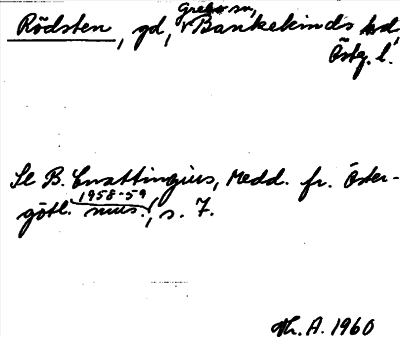 Rödsten, gd, Grebo sn, Bankekinds hd,
Östg. l.
Se B. Cnattingius, Medd. fr. Öster-
götl. mus., 1958-59, s. 7.
Th. A. 1960